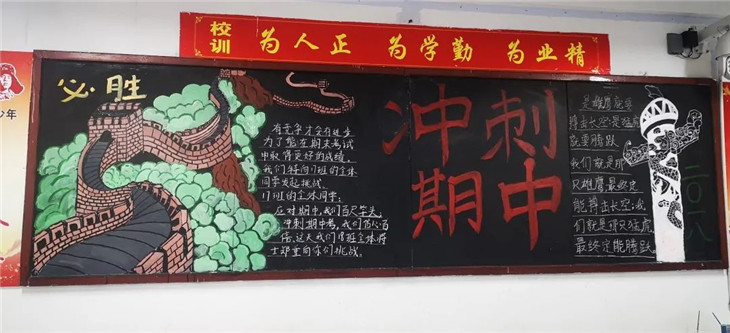 校训
为人正 为学勤 为业精
必胜
有竞争才会有进步
为了能在期末考试
中取得更好的成绩,
我们特向17班的全体
同学发起挑战.
17班的全体同学:
应对期中,我们百尺竿头
冲刺期中考,我们
倍,这天我们 班全体将
士郑重向你们挑战.
冲刺
期中
英雄
搏击长空 猛虎
我们就是
只雄鹰最终定
能搏击长空,我
们就是那只猛虎,
最终定能腾跃.
二〇一八
少年